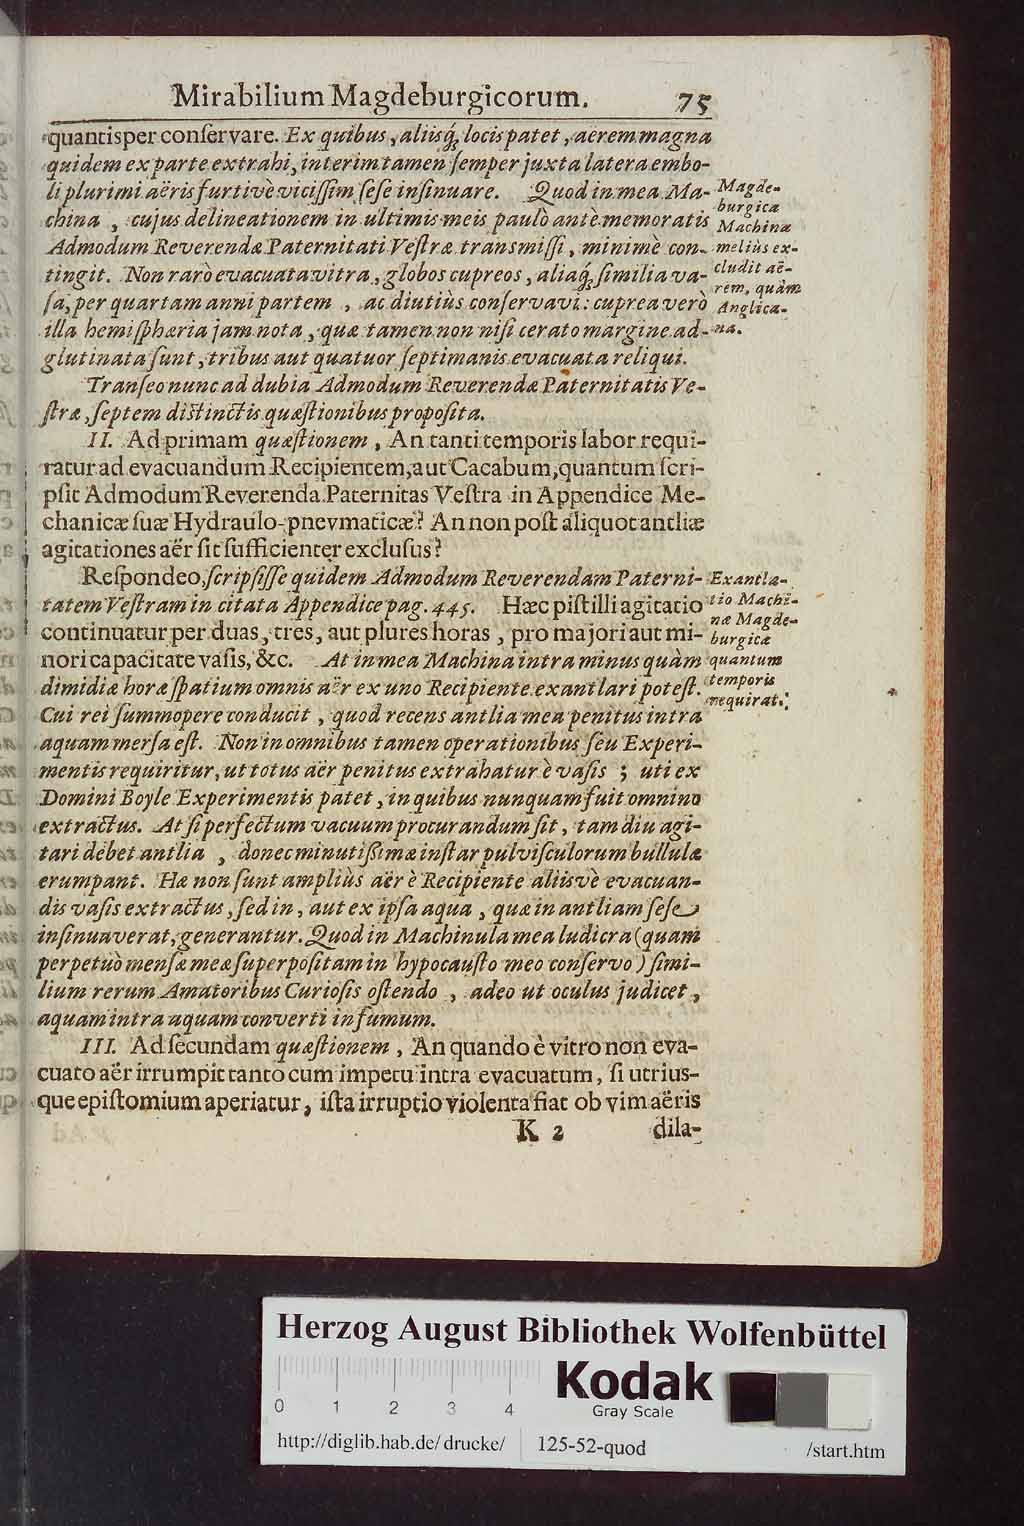 Mirabilium Magdeburgicorum. 75
quantisper conſervare. Ex quibus, aliisq́; locis patet, aërem magna
quidem ex parte extrahi, interim tamen ſemper juxta latera embo-
li plurimi aëris furtivè viciſſim ſeſe inſinuare. Quod in mea Ma-
china, cujus delineationem in ultimis meis paulò antè memoratis
Admodum Reverendæ Paternitati Veſtræ transmiſi, minimè con-
tingit. Non rarò evacuata vitra, globos cupreos, aliaq́; ſimilia va-
ſa, per quartam anni partem, ac diutiùs conſervavi: cuprea verò
illa hemiſphæria jam nota, quæ tamen non niſi cerato margine ad-
glutinata ſunt, tribus aut quatuor ſeptimanis evacuata reliqui.
Magde-
burgica
Machina
meliùs ex-
cludit aë-
rem, quàm
Anglica-
na.
Tranſeo nunc ad dubia Admodum Reverendæ Paternitatis Ve-
ſtræ, ſeptem diſtinctis quæſtionibus propoſita.
II. Ad primam quæſtionem, An tanti temporis labor requi-
ratur ad evacuandum Recipientem, aut Cacabum, quantum ſcri-
pſit Admodum Reverenda Paternitas Veſtra in Appendice Me-
chanicæ ſuæ Hydraulo-pnevmaticæ? An non poſt aliquot antliæ
agitationes aër ſit ſufficienter excluſus?
Reſpondeo, ſcripſiſſe quidem Admodum Reverendam Paterni-
tatem Veſtram in citata Appendice pag. 445. Hæc piſtilli agitatio
continuatur per duas, tres, aut plures horas, pro majori aut mi-
nori capacitate vaſis, &c. At in mea Machina intra minus quàm
dimidiæ horæ ſpatium omnis aër ex uno Recipiente exantlari poteſt.
Cui rei ſummopere conducit, quod recens antlia mea penitus intra
aquam merſa eſt. Non in omnibus tamen operationibus ſeu Experi-
mentis requiritur, ut totus aër penitus extrahatur è vaſis; uti ex
Domini Boyle Experimentis patet, in quibus nunquam fuit omnino
extractus. At ſi perfectum vacuum procurandum ſit, tam diu agi-
tari debet antlia, donec minutiſſimæ inſtar pulviſculorum bullulæ
erumpant. Hæ non ſunt ampliùs aër è Recipiente aliisvè evacuan-
dis vaſis extractus, ſed in, aut ex ipſa aqua, quæ in antliam ſeſe
inſinuaverat, generantur. Quod in Machinula mea ludicra (quam
perpetuò menſæ meæ ſuperpoſitam in hypocauſto meo conſervo) ſimi-
lium rerum Amatoribus Curioſis oſtendo, adeo ut oculus judicet,
aquam intra aquam converti in fumum.
Exantla-
tio Machi-
næ Magde-
burgicæ
quantum
temporis
requirat.
III. Ad ſecundam quæſtionem, An quando è vitro non eva-
cuato aër irrumpit tanto cum impetu intra evacuatum, ſi utrius-
que epiſtomium aperiatur, iſta irruptio violenta fiat ob vim aëris
K 2 dila-
Herzog August Bibliothek Wolfenbüttel
0 1 2 3 4
Kodak
Gray Scale
http://diglib.hab.de/drucke/ 125-52-quod /start.htm